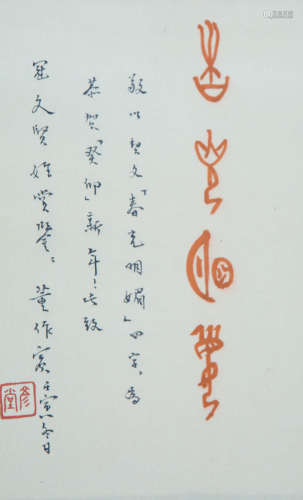 春光明媚
敬以契文「春光明媚」四字，為
恭賀「癸卯」新年！此致
羅文賢姪賞鑒： 董作賓 壬寅冬日
彥堂